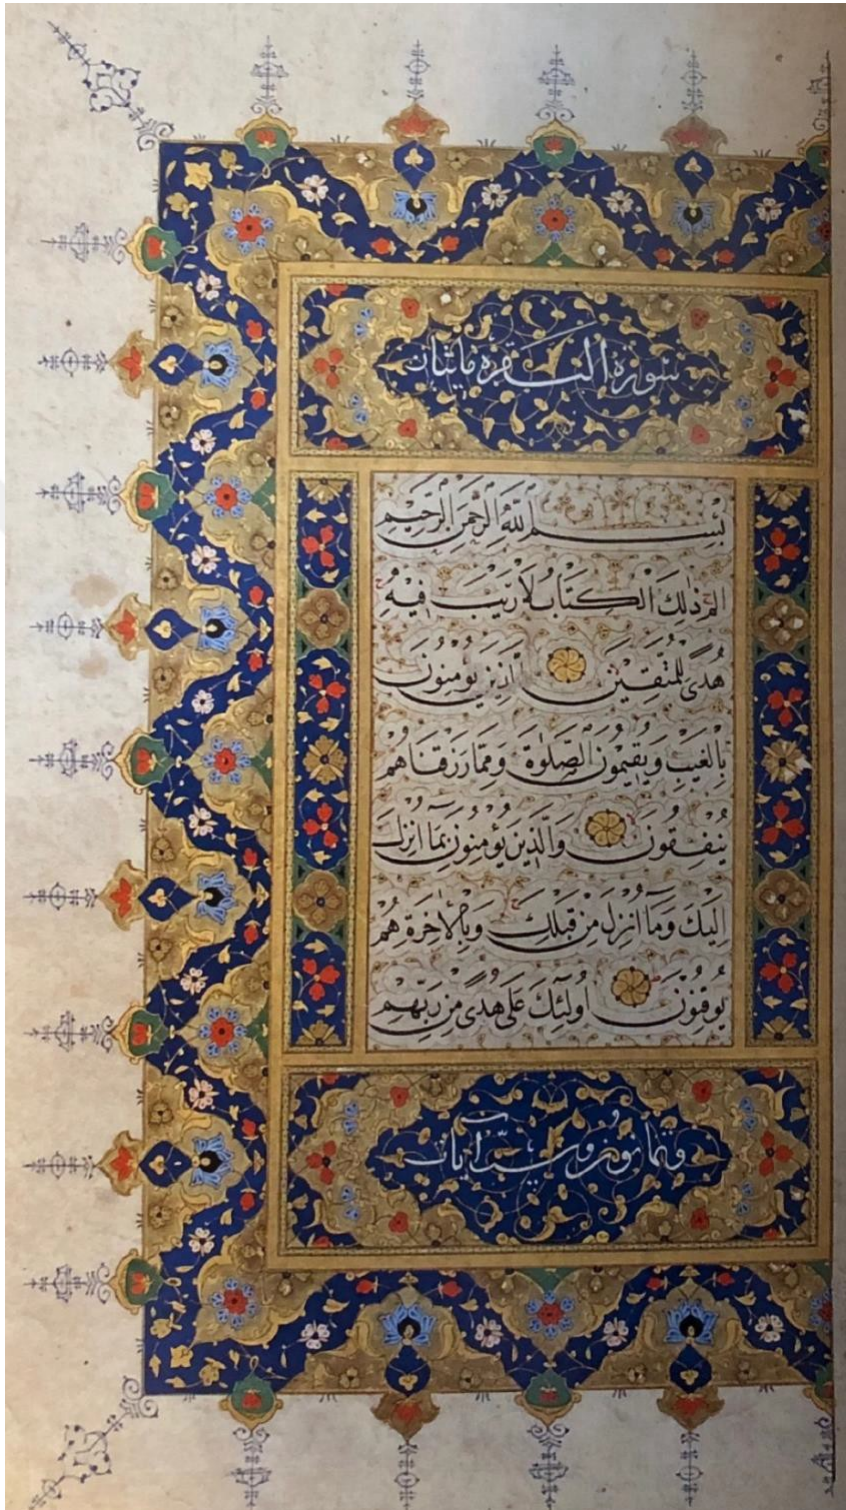 سورة البقرة مائتان
بِسْمِ اللّٰهِ الرَّحْمٰنِ الرَّحِيمِ
الٓمٓ ذٰلِكَ الْكِتَابُ لَا رَيْبَ فِيهِ ج
هُدًى لِلْمُتَّقِينَ الَّذِينَ يُؤْمِنُونَ
بِالْغَيْبِ وَيُقِيمُونَ الصَّلٰوةَ وَمِمَّا رَزَقْنَاهُمْ
يُنْفِقُونَ وَالَّذِينَ يُؤْمِنُونَ بِمَٓا اُنْزِلَ
اِلَيْكَ وَمَٓا اُنْزِلَ مِنْ قَبْلِكَ ج وَبِالْاٰخِرَةِ هُمْ
يُوقِنُونَ اُولٰٓئِكَ عَلٰى هُدًى مِنْ رَبِّهِمْ
وثمانون وست آيات